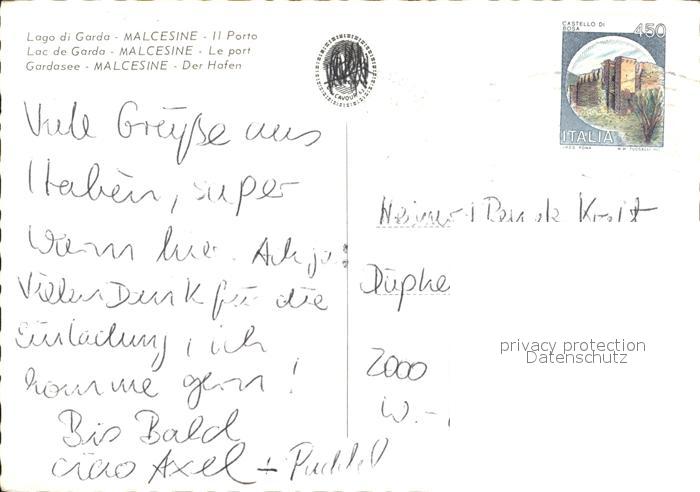 Lago di Garda - MALCESINE - Il Porto
Lac de Garda - MALCESINE - Le port
Gardasee - MALCESINE - Der Hafen
CASTELLO DI BOSA
450
ITALIA
Viele Grüße aus
Italien, super
warm hier. Ach ja:
Vielen Dank für die
Einladung, ich
komme gern!
Bis Bald
ciao Axel +
2000
W.-
privacy protection
Datenschutz